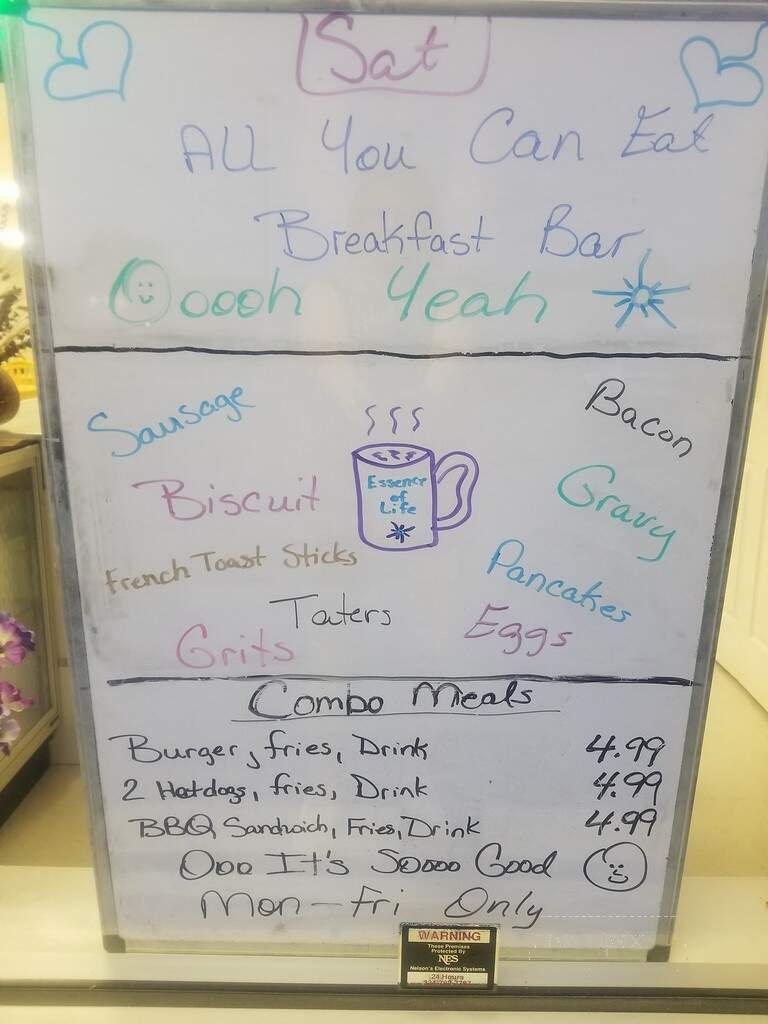 Sat
ALL You Can Eat
Breakfast Bar
Ooooh Yeah
Sausage
Bacon
Essence
of
Life
Biscuit
Gravy
French Toast Sticks
Pancakes
Taters
Eggs
Grits
Combo Meals
Burger, fries, Drink 4.99
2 Hotdogs, fries, Drink 4.99
BBQ Sandwich, Fries, Drink 4.99
Ooo It's Soooo Good
Mon-Fri Only
WARNING
These Premises
Protected By
NES
Nelson's Electronic Systems
24 Hours